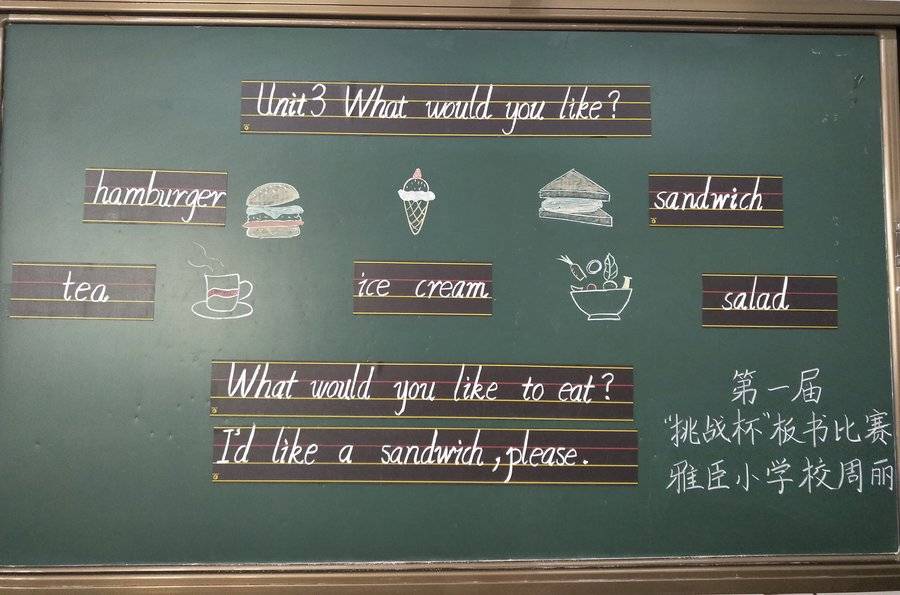 Unit3 What would you like?
hamburger
sandwich
tea
ice cream
salad
What would you like to eat?
I'd like a sandwich, please.
第一届
"挑战杯"板书比赛
雅臣小学校周丽